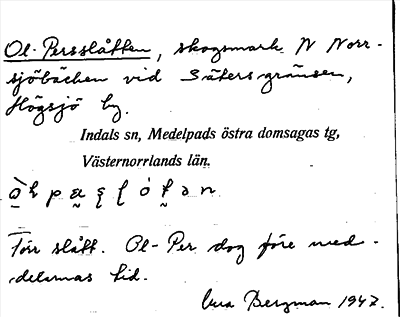 Ol-Persslåtten, skogsmark N Norr-
sjöbäcken vid Sätersgränsen,
Högsjö by.
Indals sn, Medelpads östra domsagas tg,
Västernorrlands län.
Torr slått. Ol-Per dog före med-
delarnas tid.
Bergman 1947.